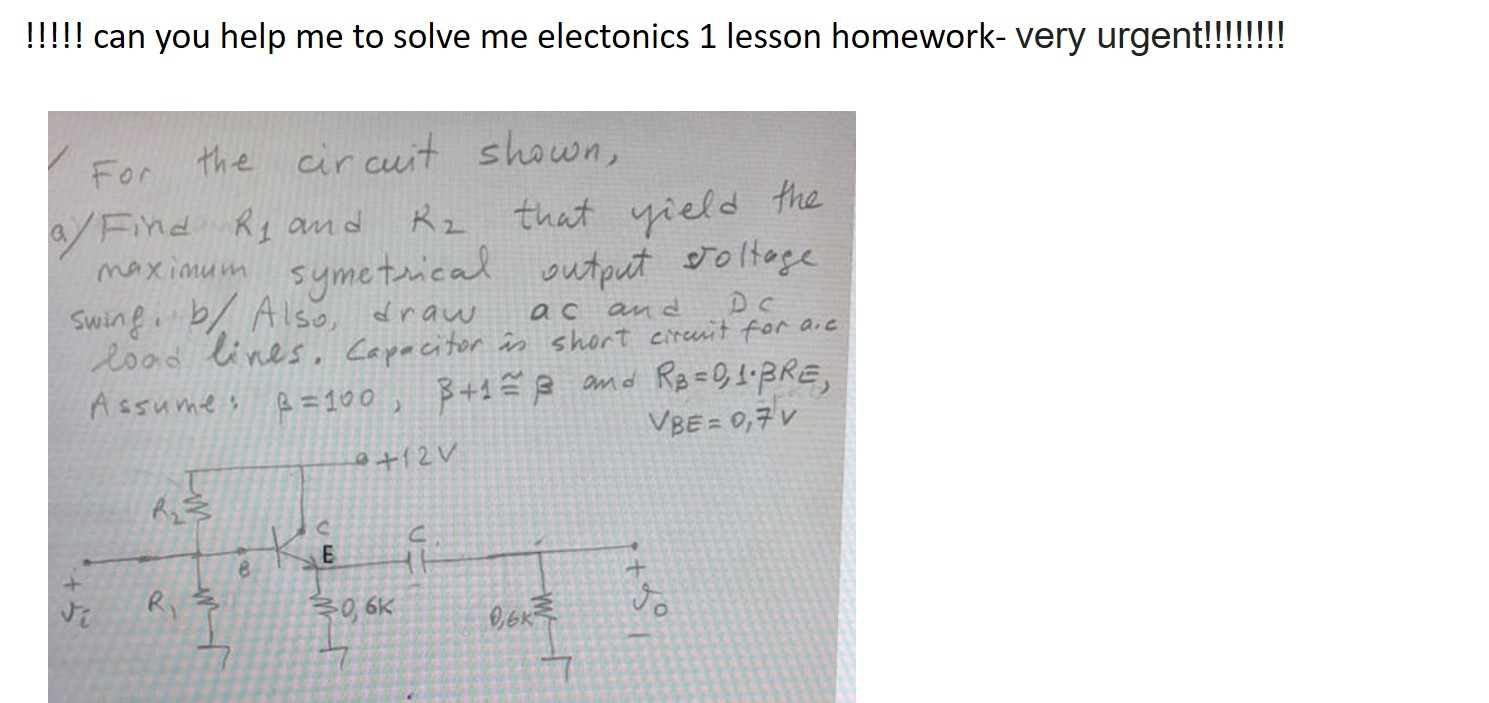 !!!!! can you help me to solve me electonics 1 lesson homework- very urgent!!!!!!!!
For the circuit shown,
a/ Find R1 and R2 that yield the
maximum symetrical output voltage
swing. b/ Also, draw ac and DC
load lines. Capacitor is short circuit for a.c
Assume: β=100, β+1≅β and RB=0,1·βRE,
VBE=0,7V
+12V
R2
C
C
E
B
+
vi
R1
0,6K
0,6K
+
vo
-